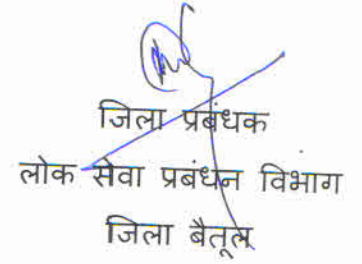 जिला प्रबंधक
लोक सेवा प्रबंधन विभाग
जिला बैतूल